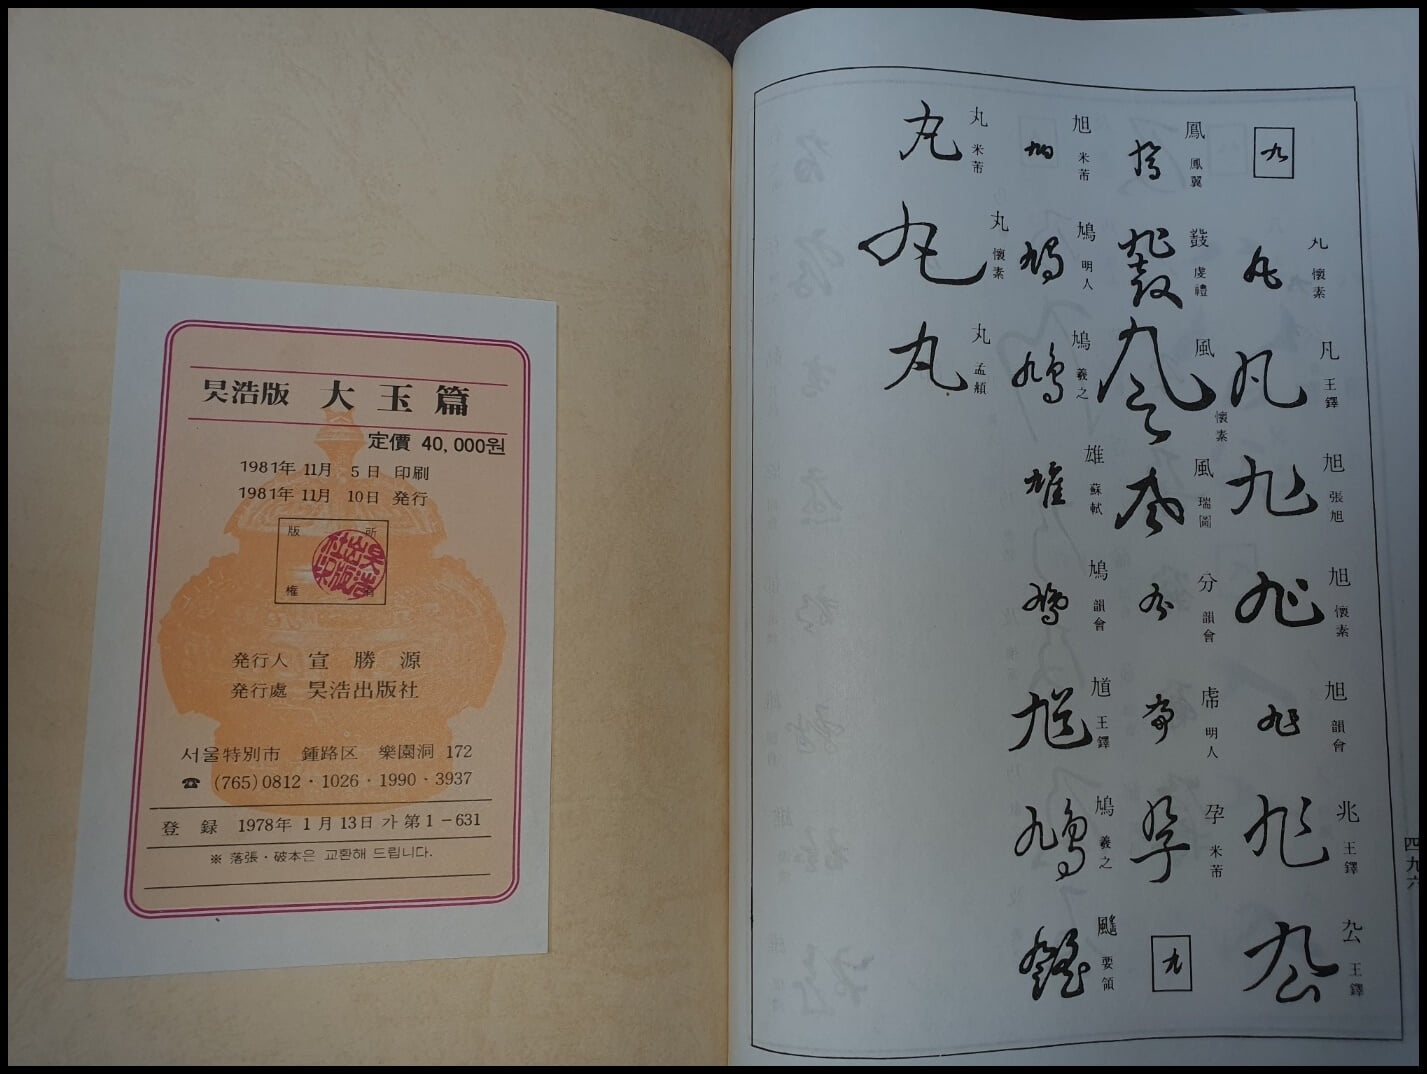 昊浩版 大玉篇
定價 40,000원
1981年 11月 5日 印刷
1981年 11月 10日 発行
版 所
権 有
昊浩出版社
発行人 宣勝源
発行處 昊浩出版社
서울特別市 鍾路区 樂園洞 172
☎ (765)0812·1026·1990·3937
登録 1978年 1月 13日 가 第1-631
※ 落張·破本은 교환해 드립니다.
九
凡 王鐸
旭 張旭
旭 懷素
旭 韻會
兆 王鐸
厹 王鐸
鳳 鳳翼
鼛 虔禮
風 懷素
風 瑞圖
分 韻會
明人
孕 米芾
九
旭 米芾
鳩 明人
鳩 羲之
雄 蘇軾
鳩 韻會
馗 王鐸
鳩 羲之
颻 要領
丸 米芾
丸 懷素
丸 孟頫
四九六